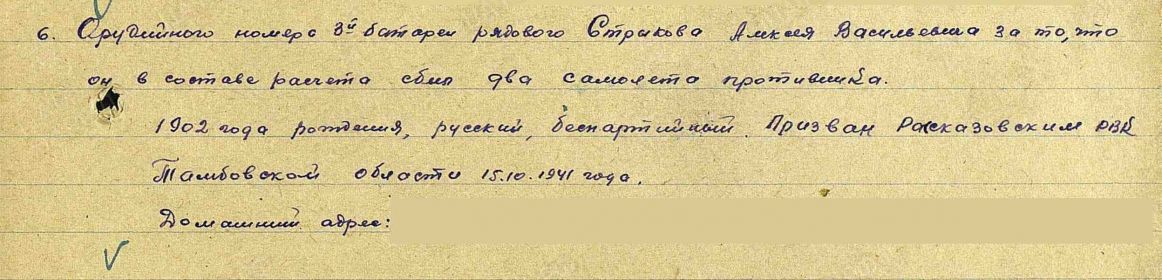 6. Орудийного номера 3й батареи рядового Стрыкова Алексея Васильевича за то, что
он в составе расчета сбил два самолета противника.
1902 года рождения, русский, беспартийный. Призван Рассказовским РВК
Тамбовской области 15.10.1941 года.
Домашний адрес: